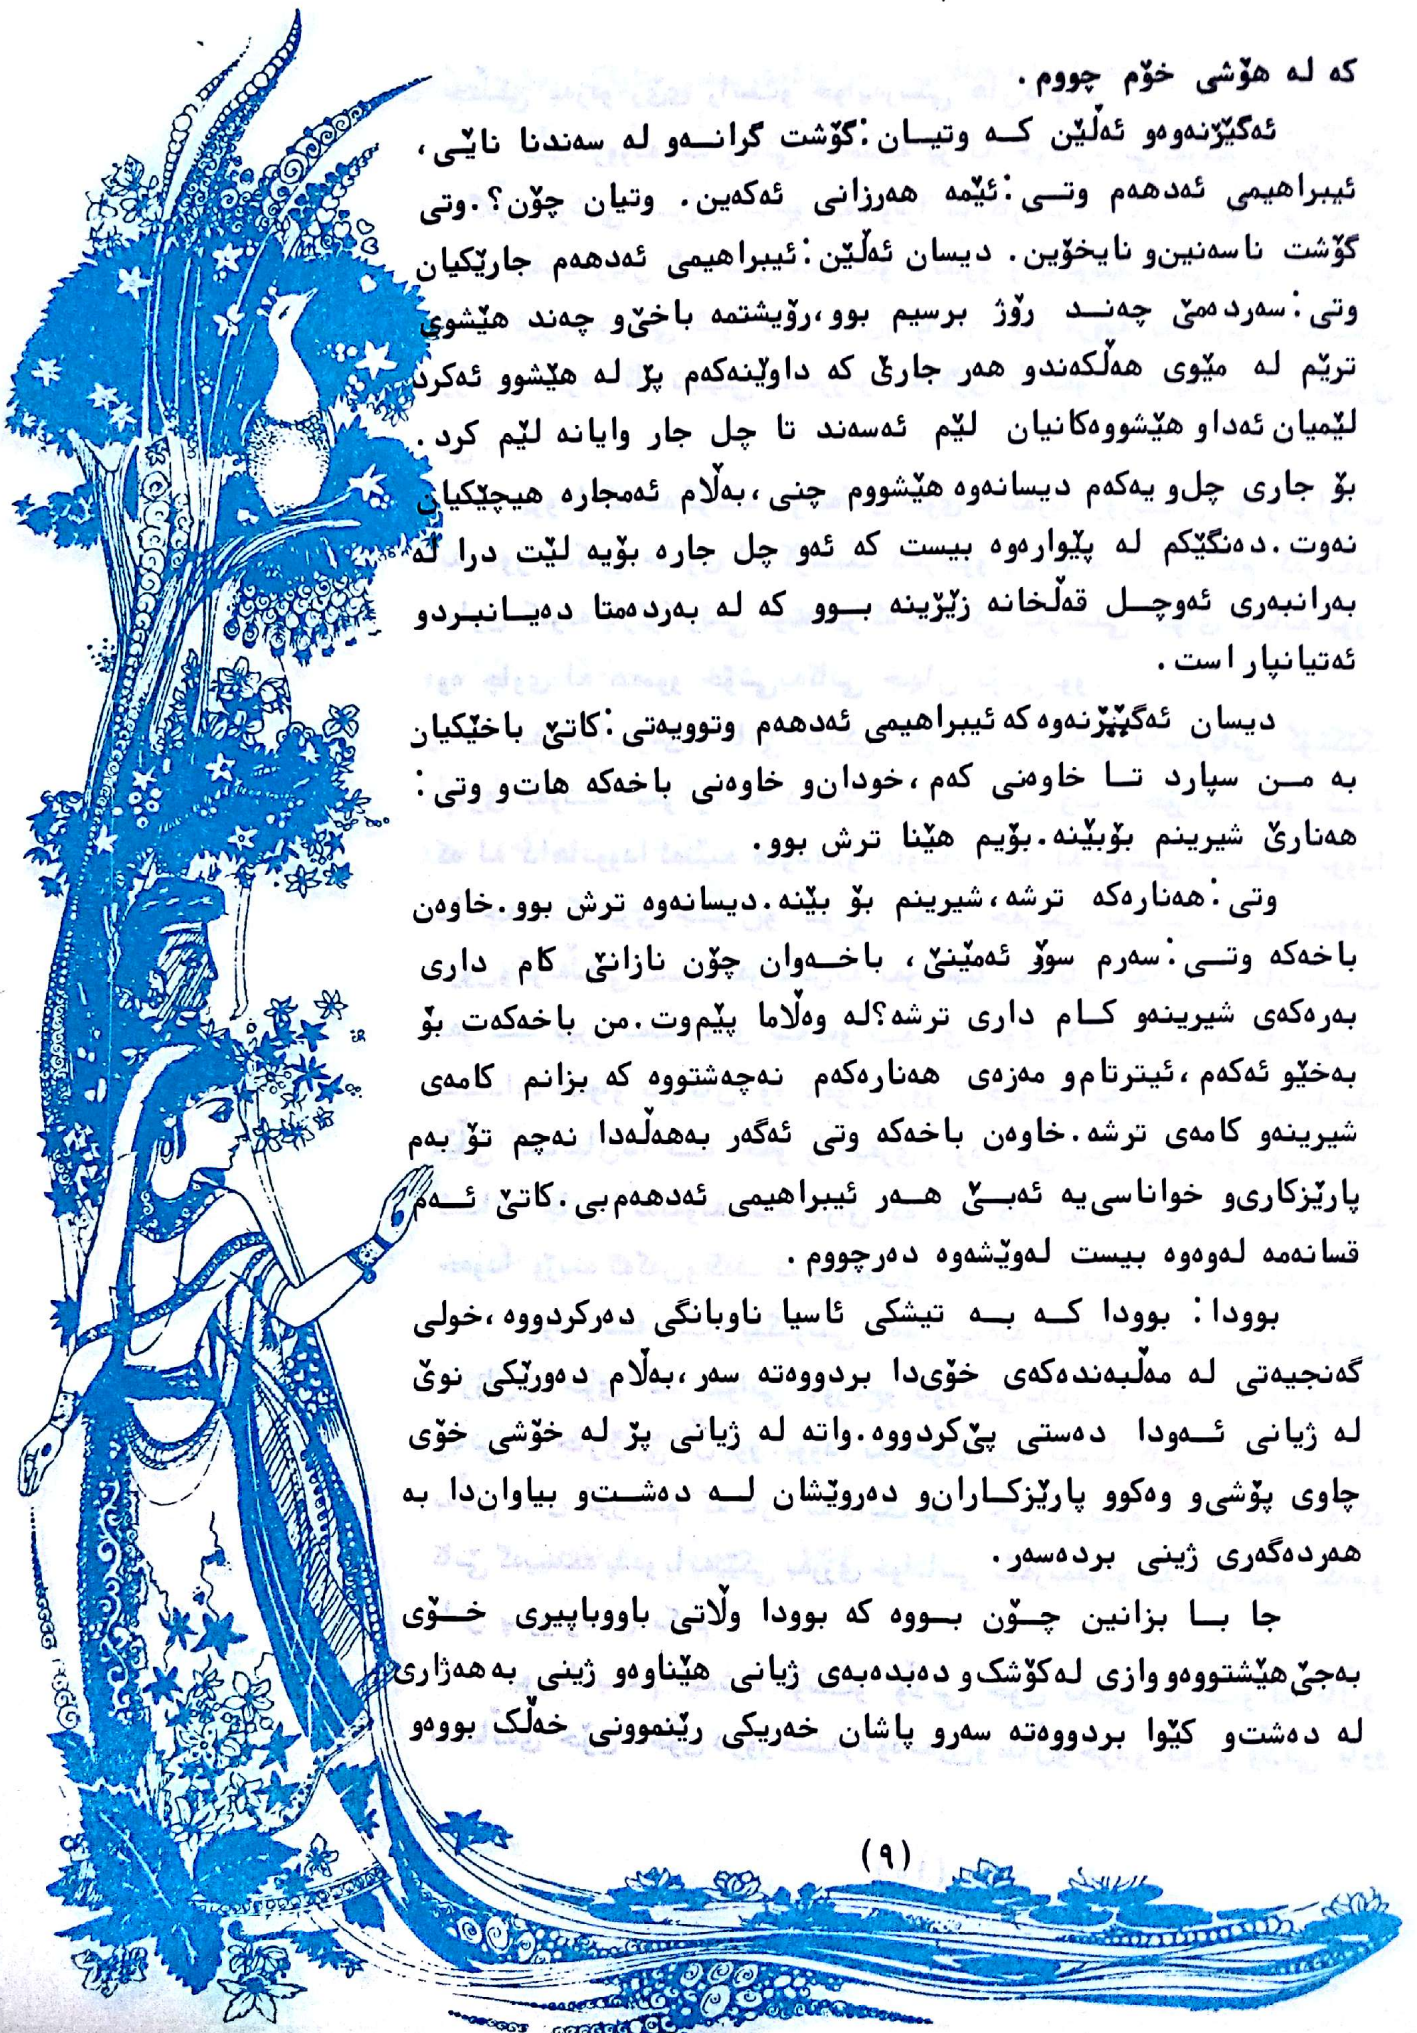 که له هۆشی خۆم چووم.
ئەگێڕنەوەو ئەڵێن کــه وتیــان:گۆشت گرانــەو له سەندنا نایێـی،
ئیبراهیمی ئەدهەم وتــی:ئێمه هەرزانی ئەکەین. وتیان چۆن؟.وتی
گۆشت ناسەنین‌و نایخۆین. دیسان ئەڵێن:ئیبراهیمی ئەدهەم جارێکیان
وتی:سەردەمێ چەنــد رۆژ برسیم بوو،رۆیشتمه باخێ‌و چەند هێشوی
ترێم له مێوی هەڵکەندو هەر جارێ که داوێنەکەم پڕ له هێشوو ئەکرد
لێمیان ئەداو هێشووەکانیان لێم ئەسەند تا چل جار وایانه لێم کرد.
بۆ جاری چل‌و یەکەم دیسانەوه هێشووم چنی،بەڵام ئەمجاره هیچێکیان
نەوت.دەنگێکم له پێوارەوه بیست که ئەو چل جاره بۆیه لێت درا له
بەرانبەری ئەوچــل قەڵخانه زێڕینه بــوو که له بەردەمتا دەیــانبـردو
ئەتیانپاراست.
دیسان ئەگێڕنەوه که ئیبراهیمی ئەدهەم وتوویەتی:کاتێ باخێکیان
به مــن سپارد تــا خاوەنی کەم،خودان‌و خاوەنی باخەکه هات‌و وتی:
هەنارێ شیرینم بۆبێنه.بۆیم هێنا ترش بوو.
وتی:هەنارەکه ترشه،شیرینم بۆ بێنه.دیسانەوه ترش بوو.خاوەن
باخەکه وتــی:سەرم سوڕ ئەمێنێ، باخــەوان چۆن نازانێ کام داری
بەرەکەی شیرینەو کــام داری ترشه؟له وەڵاما پێم‌وت.من باخەکەت بۆ
بەخێو ئەکەم،ئیترتام‌و مەزەی هەنارەکەم نەچەشتووه که بزانم کامەی
شیرینەو کامەی ترشه.خاوەن باخەکه وتی ئەگەر بەهەڵەدا نەچم تۆ بەم
پارێزکاری‌و خواناسی‌یه ئەبــێ هــەر ئیبراهیمی ئەدهەم‌بی.کاتێ ئــەم
قسانەمه لەوەوه بیست لەوێشەوه دەرچووم.
بوودا: بوودا کــه بــه تیشکی ئاسیا ناوبانگی دەرکردووه،خولی
گەنجیەتی له مەڵبەندەکەی خۆی‌دا بردووەته سەر،بەڵام دەورێکی نوێ
له ژیانی ئــەودا دەستی پێ‌کردووه.واته له ژیانی پڕ له خۆشی خۆی
چاوی پۆشی‌و وەکوو پارێزکــاران‌و دەروێشان لــه دەشــت‌و بیاوان‌دا به
هەردەگەری ژینی بردەسەر.
جا بــا بزانین چــۆن بــووه که بوودا وڵاتی باووباپیری خــۆی
بەجێ‌هێشتووەو وازی له‌کۆشک‌و دەبدەبەی ژیانی هێناوەو ژینی به‌هەژاری
له دەشت‌و کێوا بردووەته سەرو پاشان خەریکی رێنموونی خەڵک بووەو
(٩)